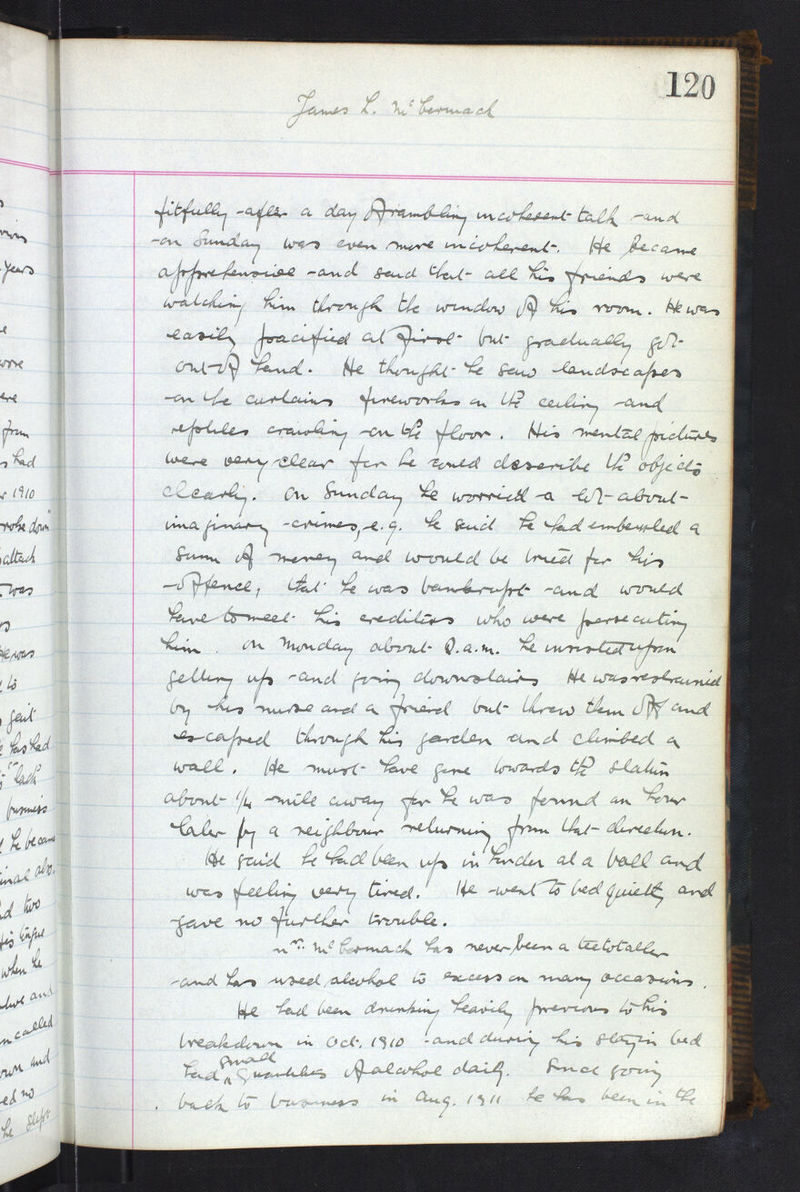 120
James L. McCormack
fitfully after a day of rambling incoherent talk and
on Sunday was even more incoherent. He became
apprehensive and said that all his friends were
watching him through the window of his room. He was
easily pacified at first but gradually got
out of hand. He thought he saw landscapes
on the curtains fireworks on the ceiling and
reptiles crawling on the floor. His mental pictures
were very clear for he could describe the objects
clearly. On Sunday he worried a lot about
imaginary crimes, e.g. he said he had embezzled a
sum of money and would be tried for his
offence, that he was bankrupt and would
have to meet his creditors who were persecuting
him. On Monday about 2.a.m. he insisted upon
getting up and going downstairs He was restrained
by his nurse and a friend but threw them off and
escaped through his garden and climbed a
wall. He must have gone towards the station
about 1/4 mile away for he was found an hour
later by a neighbour returning from that direction.
He said he had been up in London at a ball and
was feeling very tired. He went to bed quietly and
gave no further trouble.
Mr. McCormack has never been a teetotaller
and has used alcohol to excess on many occasions.
He had been drinking heavily previous to his
breakdown in Oct. 1910 and during his stay in bed
had small quantities of alcohol daily. Since going
back to business in Aug. 1911 he has been in the
years
from
had
1910
broke down"
attack
was
He was
to
gait
has had
business
he became
two
when he
and
called
and
no
he slept